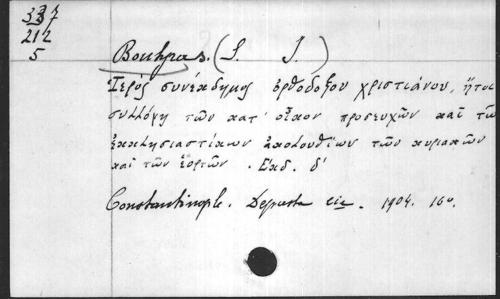 337
212
5
Boutyras. (S. I.)
Ἱερός συνέκδημος ὀρθοδόξου χριστιάνου, ἤτοι
συλλόγη τῶν κατ' οἶκον προσευχῶν καί τῶν
ἐκκλησιαστίκων ἀκολουθίων τῶν κυριακῶν
καί τῶν ἑορτῶν. Ἐκδ. δ'
Constantinople. Depasta 1904. 16o.